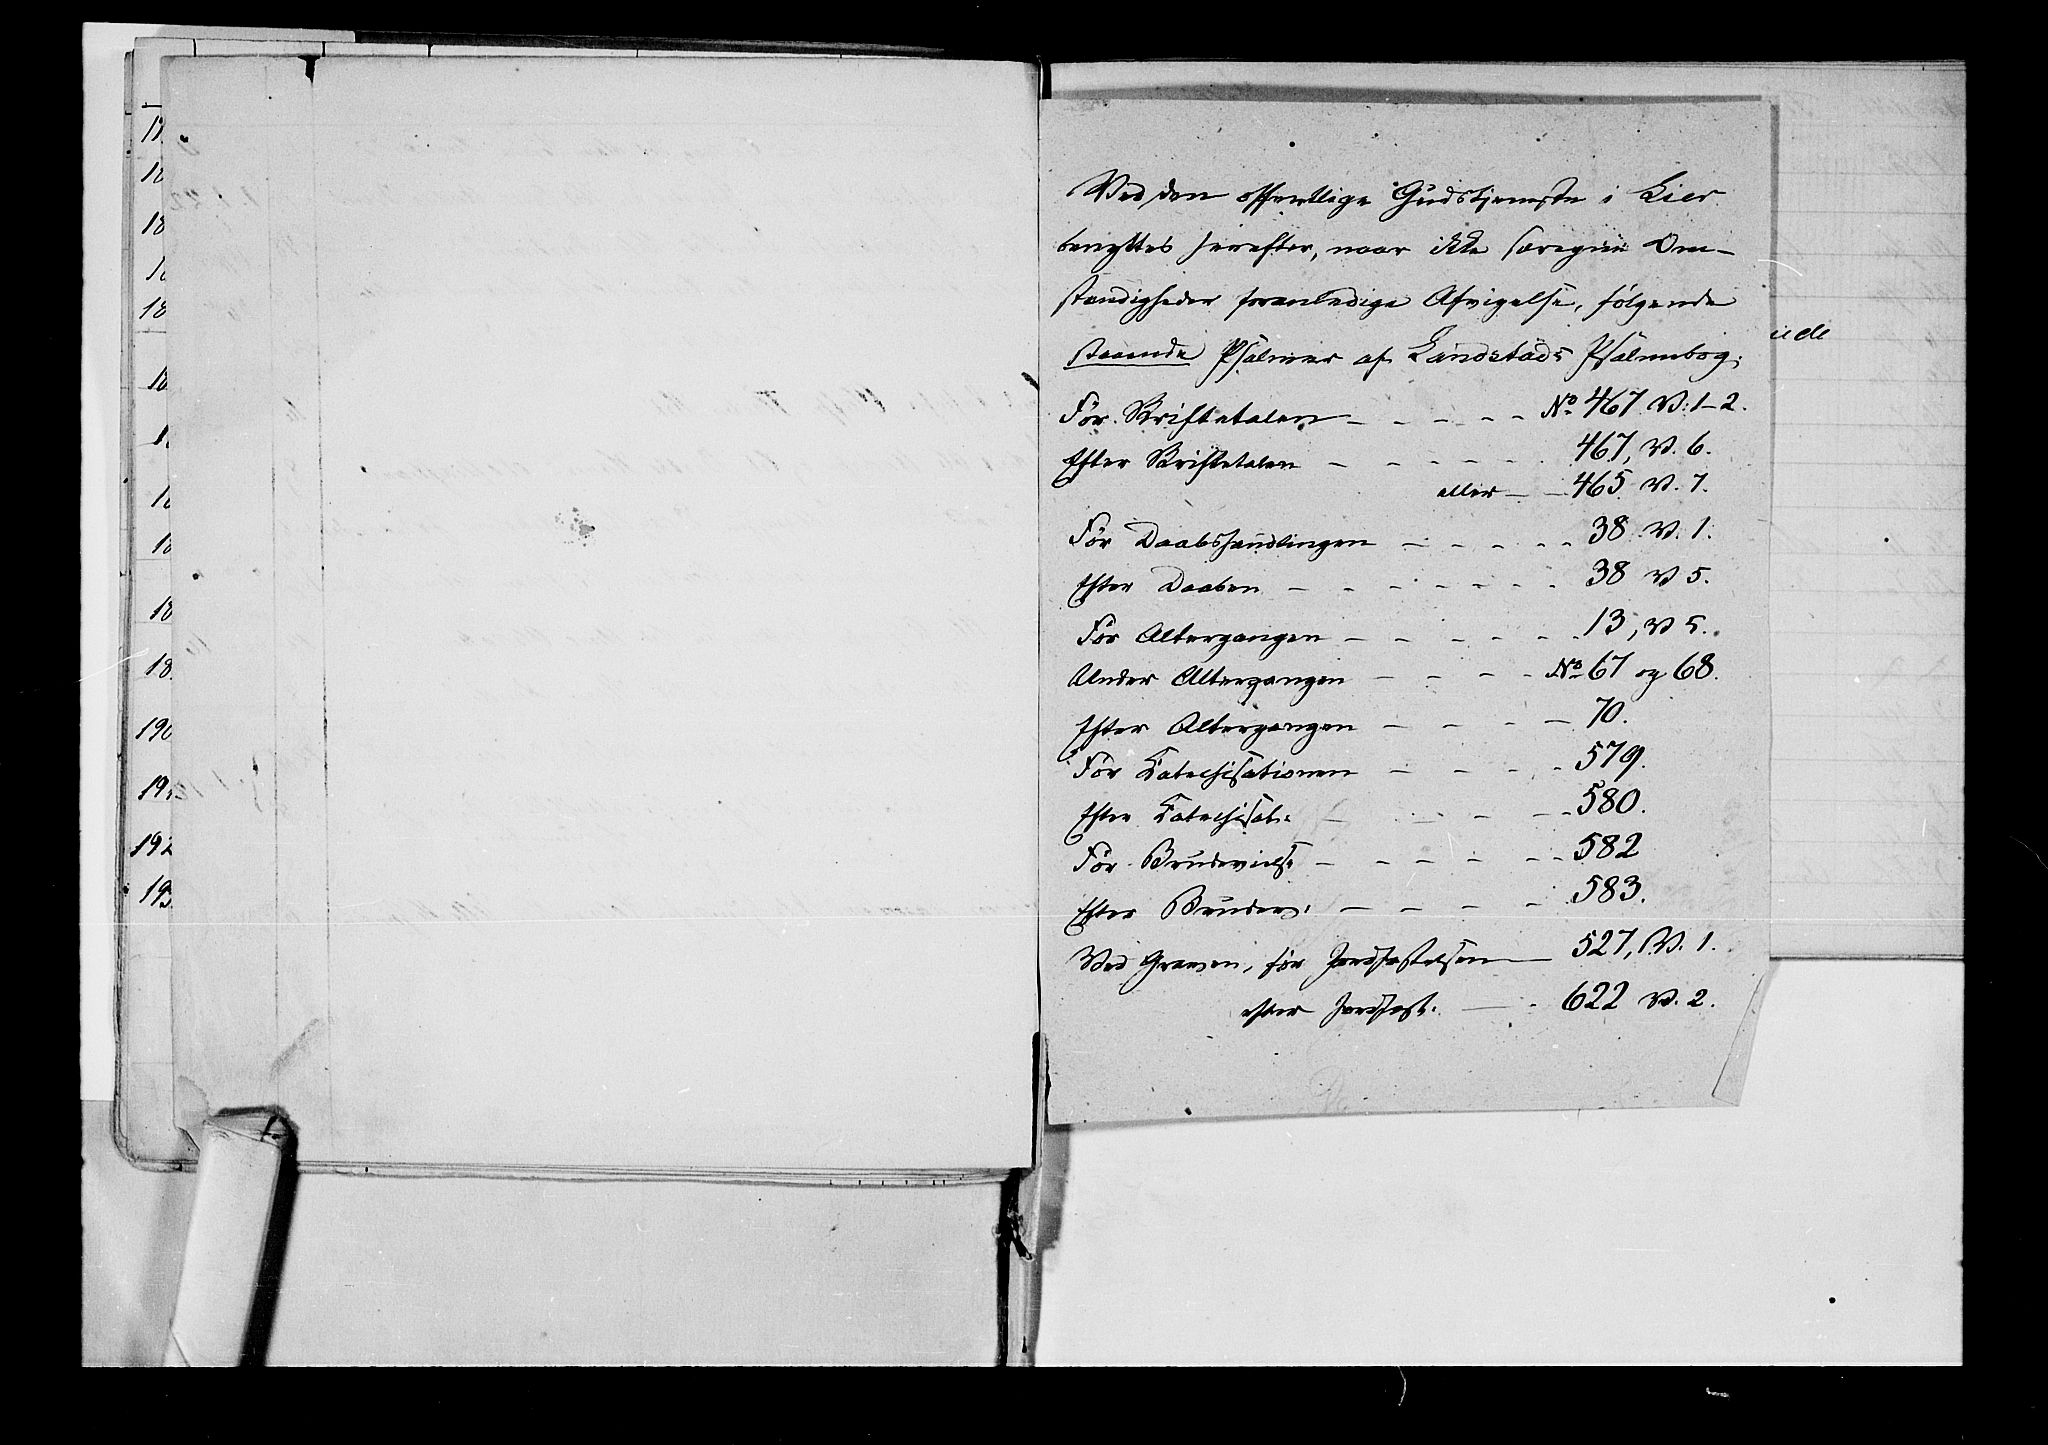 18
18
18
18
18
18
18
18
18
18
190
19
192
193
Ved den offentlige Gudstjeneste i Lier
benyttes herefter, naar ikke særegne Om-
stændigheder foranledige Afvigelse, følgende
staaende Psalmer af Landstads Psalmebog:
Før Skriftetalen — — — — — No 467 V. 1-2.
Efter Skriftetalen — — — — — 467, V. 6.
eller — — 465 V. 7.
Før Daabshandlingen — — — — — 38 V. 1.
Efter Daaben — — — — — — 38 V 5.
Før Altergangen — — — — — 13, V 5.
Under Altergangen — — — — No 67 og 68.
Efter Altergangen — — — — 70.
Før Catechisationen — — — — 579.
Efter Catechisat: — — — — 580.
Før Brudevielse — — — — — 582
Efter Brudev: — — — — — 583.
Ved Graven, før Jordfæstelsen — 527, V. 1.
efter Jordfæst. — — 622 V. 2.